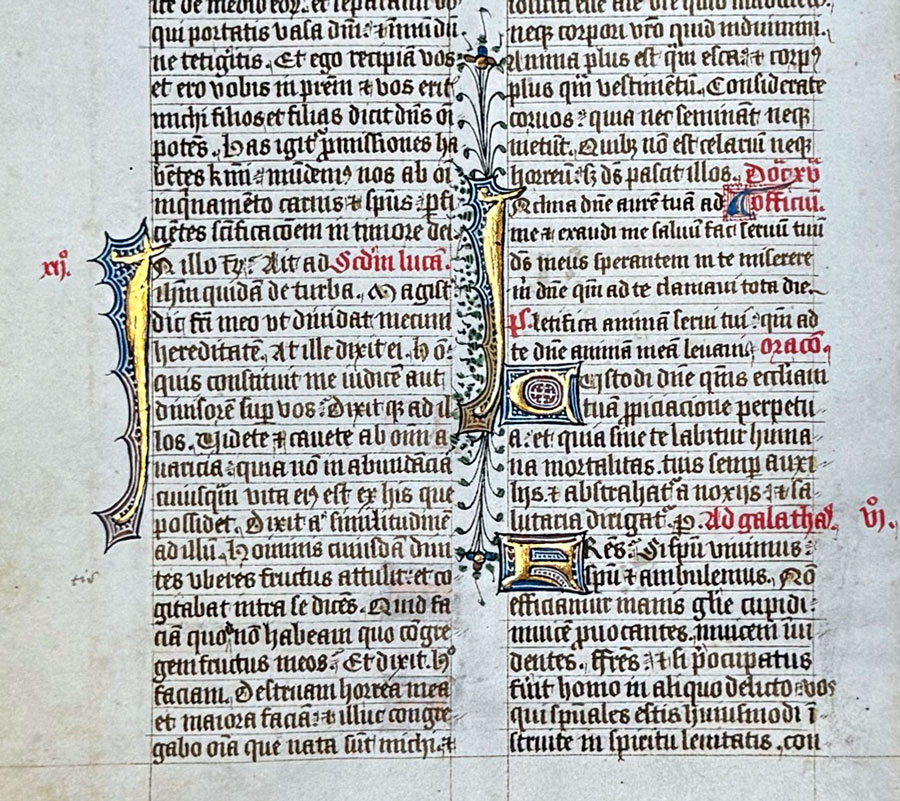 ite de medio eoꝝ. et separami dō
qui portatis vasa dn̄i. ⁊ inmūdū
ne tetigitis. Et ego recipiā vos
et ero vobis in prēm ⁊ vos erit
michi filios et filias dicit dn̄s oī
potēs. Has igit᷑ ꝓmissiones ha
bētes kmi mūdem᷒ nos ab oī
inqnamēto carnis ⁊ sp̄us. ꝑfi
ciētes sc̄ificacōem in timore dei
xij. IN illo t̄p̄r. Ait ad Scd̄m lucā.
ih̄m quidā de turba. Magist̄
dic fr̄i meo vt diuidat mecum
hereditatē. At ille dixit ei. hō
quis constituit me iudicē aut
diuisorē sup̄ vos. Dixit qꝫ ad il
los. Videte ⁊ cauete ab om̄i a
uaricia. quia nō in abundācia
cuiusqm̄ vita ei᷒ est ex his que
possidet. Dixit aᷓ similitudinē
ad illū. Hominis cuiusdā diui
tis
tes vberes fructus attulit. et co
gitabat intra se dicēs. Quid fa
ciā quoᷓ nō habeam quo cōgre
gem fructus meos. Et dixit. hᵒ
faciam. Destruam horrea mea
et maiora faciā. ⁊ illuc congre
gabo oīa que nata sūt michi. ⁊
neqꝫ corpori vr̄o quid induimini.
Anima plus est qm̄ esca. ⁊ corp᷒
plus qm̄ vestimētū. Considerate
coruos. quia nec seminant neqꝫ
metūt. Quibꝫ nō est celariū neqꝫ
horreū. sꝫ ds̄ pascit illos. Dōc̄ xv
INclina dn̄e aurē tuā ad officiū.
me ⁊ exaudi me saluū fac seruū tuū
ds̄ meus sperantem in te miserere
m̄ dn̄e qm̄ ad te clamaui tota die.
ps. letifica animā serui tui. qm̄ ad
te dn̄e animā meā leuaui. oracō.
Custodi dn̄e qm̄s eccliam
tuā ꝓpiciacione perpetu
a. et quia sine te labitur huma
na mortalitas. tuis semp̄ auxi
lijs. ⁊ abstrahat᷑ a noxijs. ⁊ sa
lutaria dirigat᷑. p. Ad galathas. vi.
FRēs. Si sp̄u viuimus.
sp̄u ⁊ ambulemus. Nō
efficiamur inanis gl̄ie cupidi.
inuicē ꝓuocantes. inuicem īui
dentes. ffrēs. ⁊ si p̄ocupatus
fūit homo in aliquo delicto. vos
qui sp̄uales estis huiusmodi ī
struite in spiritu lenitatis. con